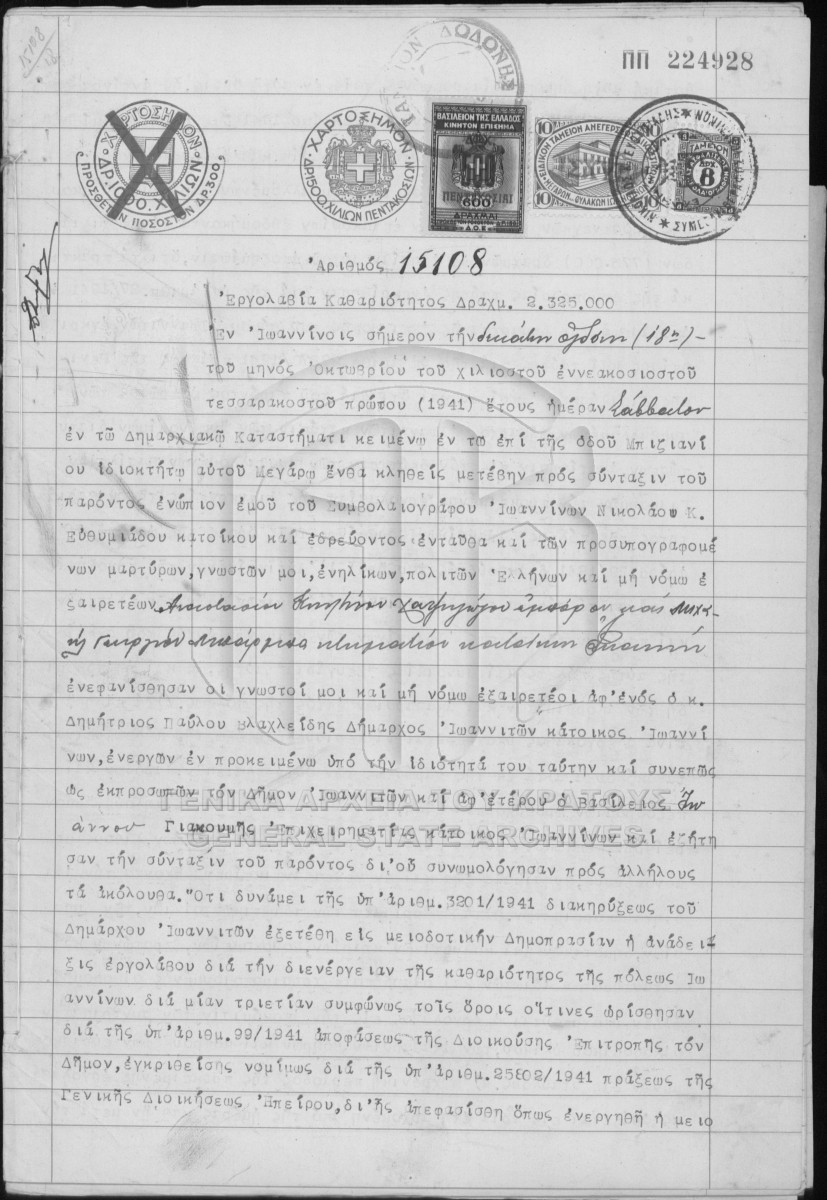 15108
ΠΠ 224928
ΤΑΜΕΙΟΝ ΔΩΔΩΝΗΣ
ΧΑΡΤΟΣΗΜΟΝ
ΔΡ.1000.ΧΙΛΙΩΝ
ΠΡΟΣΘΕΤΟΝ ΠΟΣΟΣΤΟΝ ΔΡ.300
ΧΑΡΤΟΣΗΜΟΝ
ΔΡ.1500 ΧΙΛΙΩΝ ΠΕΝΤΑΚΟΣΙΩΝ
ΒΑΣΙΛΕΙΟΝ ΤΗΣ ΕΛΛΑΔΟΣ
ΚΙΝΗΤΟΝ ΕΠΙΣΗΜΑ
500
600
ΔΡΑΧΜΑΙ
10 10
10 10
ΤΑΜΕΙΟΝ
ΔΡΧ
8
Ἀριθμός 15108
Ἐργολαβία Καθαριότητος Δραχμ. 2.325.000
Ἐν Ἰωαννίνοις σήμερον τήν δεκάτην ὀγδόην (18ην)-
τοῦ μηνός Ὀκτωβρίου τοῦ χιλιοστοῦ ἐννεακοσιοστοῦ
τεσσαρακοστοῦ πρώτου (1941) ἔτους ἡμέραν Σάββατον
ἐν τῶ Δημαρχιακῶ Καταστήματι κειμένῳ ἐν τω ἐπί τῆς ὁδοῦ Μπιζιανί
ου ἰδιοκτήτῳ αὐτοῦ Μεγάρῳ ἔνθα κληθείς μετέβην πρός σύνταξιν τοῦ
παρόντος ἐνώπιον ἐμοῦ τοῦ Συμβολαιογράφου Ἰωαννίνων Νικολάου Κ.
Εὐθυμιάδου κατοίκου καί ἑδρεύοντος ἐνταῦθα καί τῶν προσυπογραφομέ
νων μαρτύρων,γνωστῶν μοι,ἐνηλίκων,πολιτῶν Ἑλλήνων καί μή νόμω ἐ
ξαιρετέων Ἀναστασίου
Γεωργίου κτηματίου κατοίκων
ἐνεφανίσθησαν οἱ γνωστοί μοι καί μή νόμω ἐξαιρετέοι ἀφ'ἑνός ὁ κ.
Δημήτριος Παύλου Βλαχλεΐδης Δήμαρχος Ἰωαννιτῶν κάτοικος Ἰωαννί
νων,ἐνεργῶν ἐν προκειμένω ὑπό τήν ἰδιότητά του ταύτην καί συνεπῶς
ὡς ἐκπροσωπῶν τόν Δῆμον Ἰωαννιτῶν καί ἀφ'ἑτέρου ὁ Βασίλειος Ἰω
άννου Γιακουμῆς Ἐπιχειρηματίας κάτοικος Ἰωαννίνων καί ἐζήτη
σαν τήν σύνταξιν τοῦ παρόντος δι'οὗ συνωμολόγησαν πρός ἀλλήλους
τά ἀκόλουθα."Οτι δυνάμει τῆς ὑπ'ἀριθμ.3201/1941 διακηρύξεως τοῦ
Δημάρχου Ἰωαννιτῶν ἐξετέθη εἰς μειοδοτικήν Δημοπρασίαν ἡ ἀνάδει
ξις ἐργολάβου διά τήν διενέργειαν τῆς καθαριότητος τῆς πόλεως Ιω
αννίνων διά μίαν τριετίαν συμφώνως τοῖς ὅροις οἵτινες ὡρίσθησαν
διά τῆς ὑπ'ἀριθμ.99/1941 ἀποφάσεως τῆς Διοικούσης Ἐπιτροπῆς τόν
Δῆμον,ἐγκριθείσης νομίμως διά τῆς ὑπ'ἀριθμ.25802/1941 πράξεως τῆς
Γενικῆς Διοικήσεως Ἠπείρου,δι'ἧς ἀπεφασίσθη ὅπως ἐνεργηθῆ ἡ μειο
ΓΕΝΙΚΑ ΑΡΧΕΙΑ ΤΟΥ ΚΡΑΤΟΥΣ
GENERAL STATE ARCHIVES